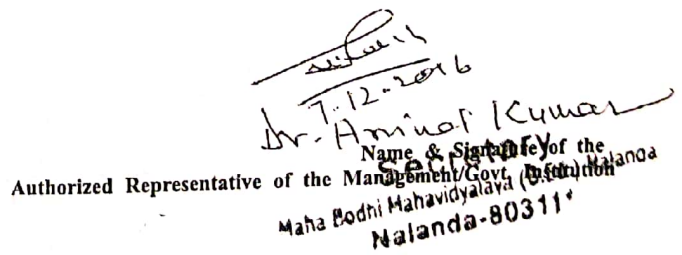 7.12.2016
Dr. Arvind Kumar
Name & Signature of the
Secretary
Authorized Representative of the Management/Govt. Institution
Maha Bodhi Mahavidyalaya Nalanda
Nalanda-80311